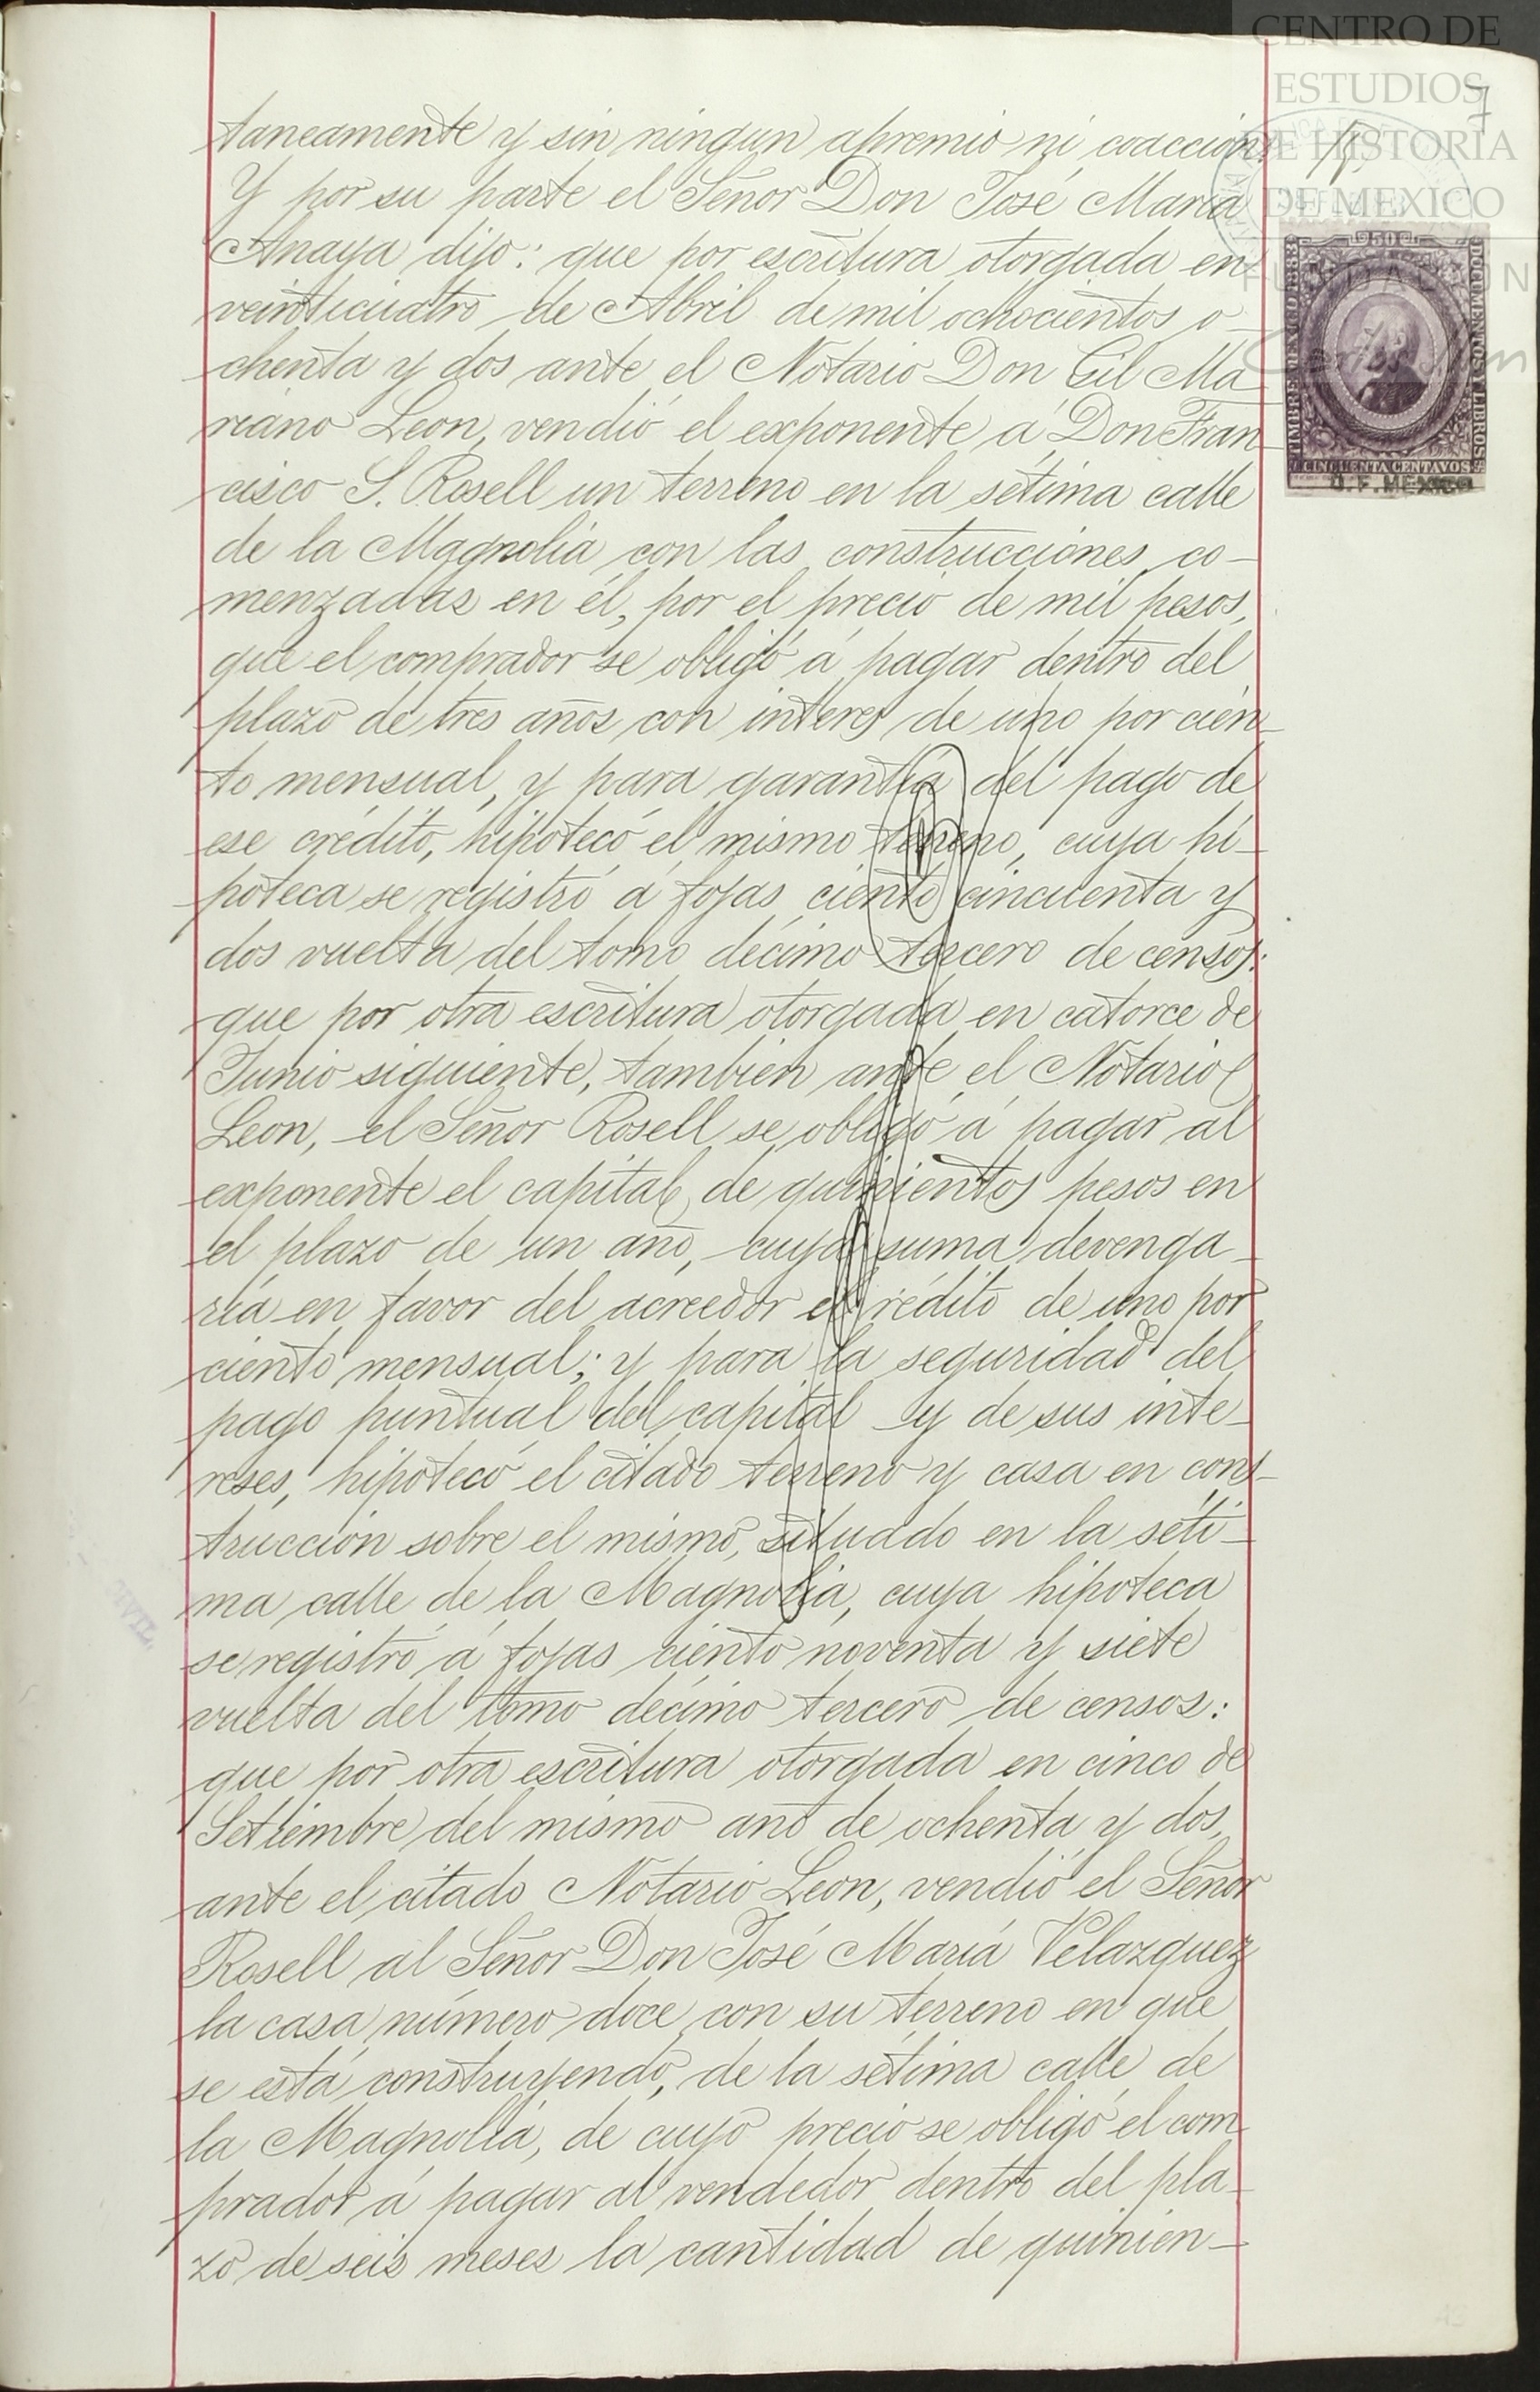 CENTRO DE
ESTUDIOS
DE HISTORIA
DE MEXICO
FUNDACION
7
50
TIMBRE MEXICO 1883
DOCUMENTOS Y LIBROS
CINCUENTA CENTAVOS
D. F. MEXICO
taneamente y sin ningun apremio ni coaccion.
Y por su parte el Señor Don José María
Anaya dijo: que por escritura otorgada en
veinticuatro de Abril de mil ochocientos o-
chenta y dos ante el Notario Don Gil Ma
riano Leon, vendió el exponente á Don Fran-
cisco S. Rosell un terreno en la sétima calle
de la Magnolia con las construcciones co-
menzadas en él, por el precio de mil pesos,
que el comprador se obligó á pagar dentro del
plazo de tres años con interes de uno por cien-
to mensual, y para garantía del pago de
ese crédito, hipotecó el mismo terreno, cuya hi-
poteca se registró á fojas ciento cincuenta y
dos vuelta del tomo décimo tercero de censos:
que por otra escritura otorgada en catorce de
Junio siguiente, tambien ante el Notario
Leon, el Señor Rosell se obligó á pagar al
exponente el capital de quinientos pesos en
el plazo de un año, cuya suma devenga-
ría en favor del acreedor el rédito de uno por
ciento mensual; y para la seguridad del
pago puntual del capital y de sus inte-
reses, hipotecó el citado terreno y casa en cons-
truccion sobre el mismo, situado en la séti-
ma calle de la Magnolia, cuya hipoteca
se registró á fojas ciento noventa y siete
vuelta del tomo décimo tercero de censos:
que por otra escritura otorgada en cinco de
Setiembre del mismo año de ochenta y dos,
ante el citado Notario Leon, vendió el Señor
Rosell al Señor Don José María Velazquez
la casa número doce con su terreno en que
se está construyendo, de la sétima calle de
la Magnolia, de cuyo precio se obligó el com
prador á pagar al vendedor dentro del pla-
zo de seis meses la cantidad de quinien-